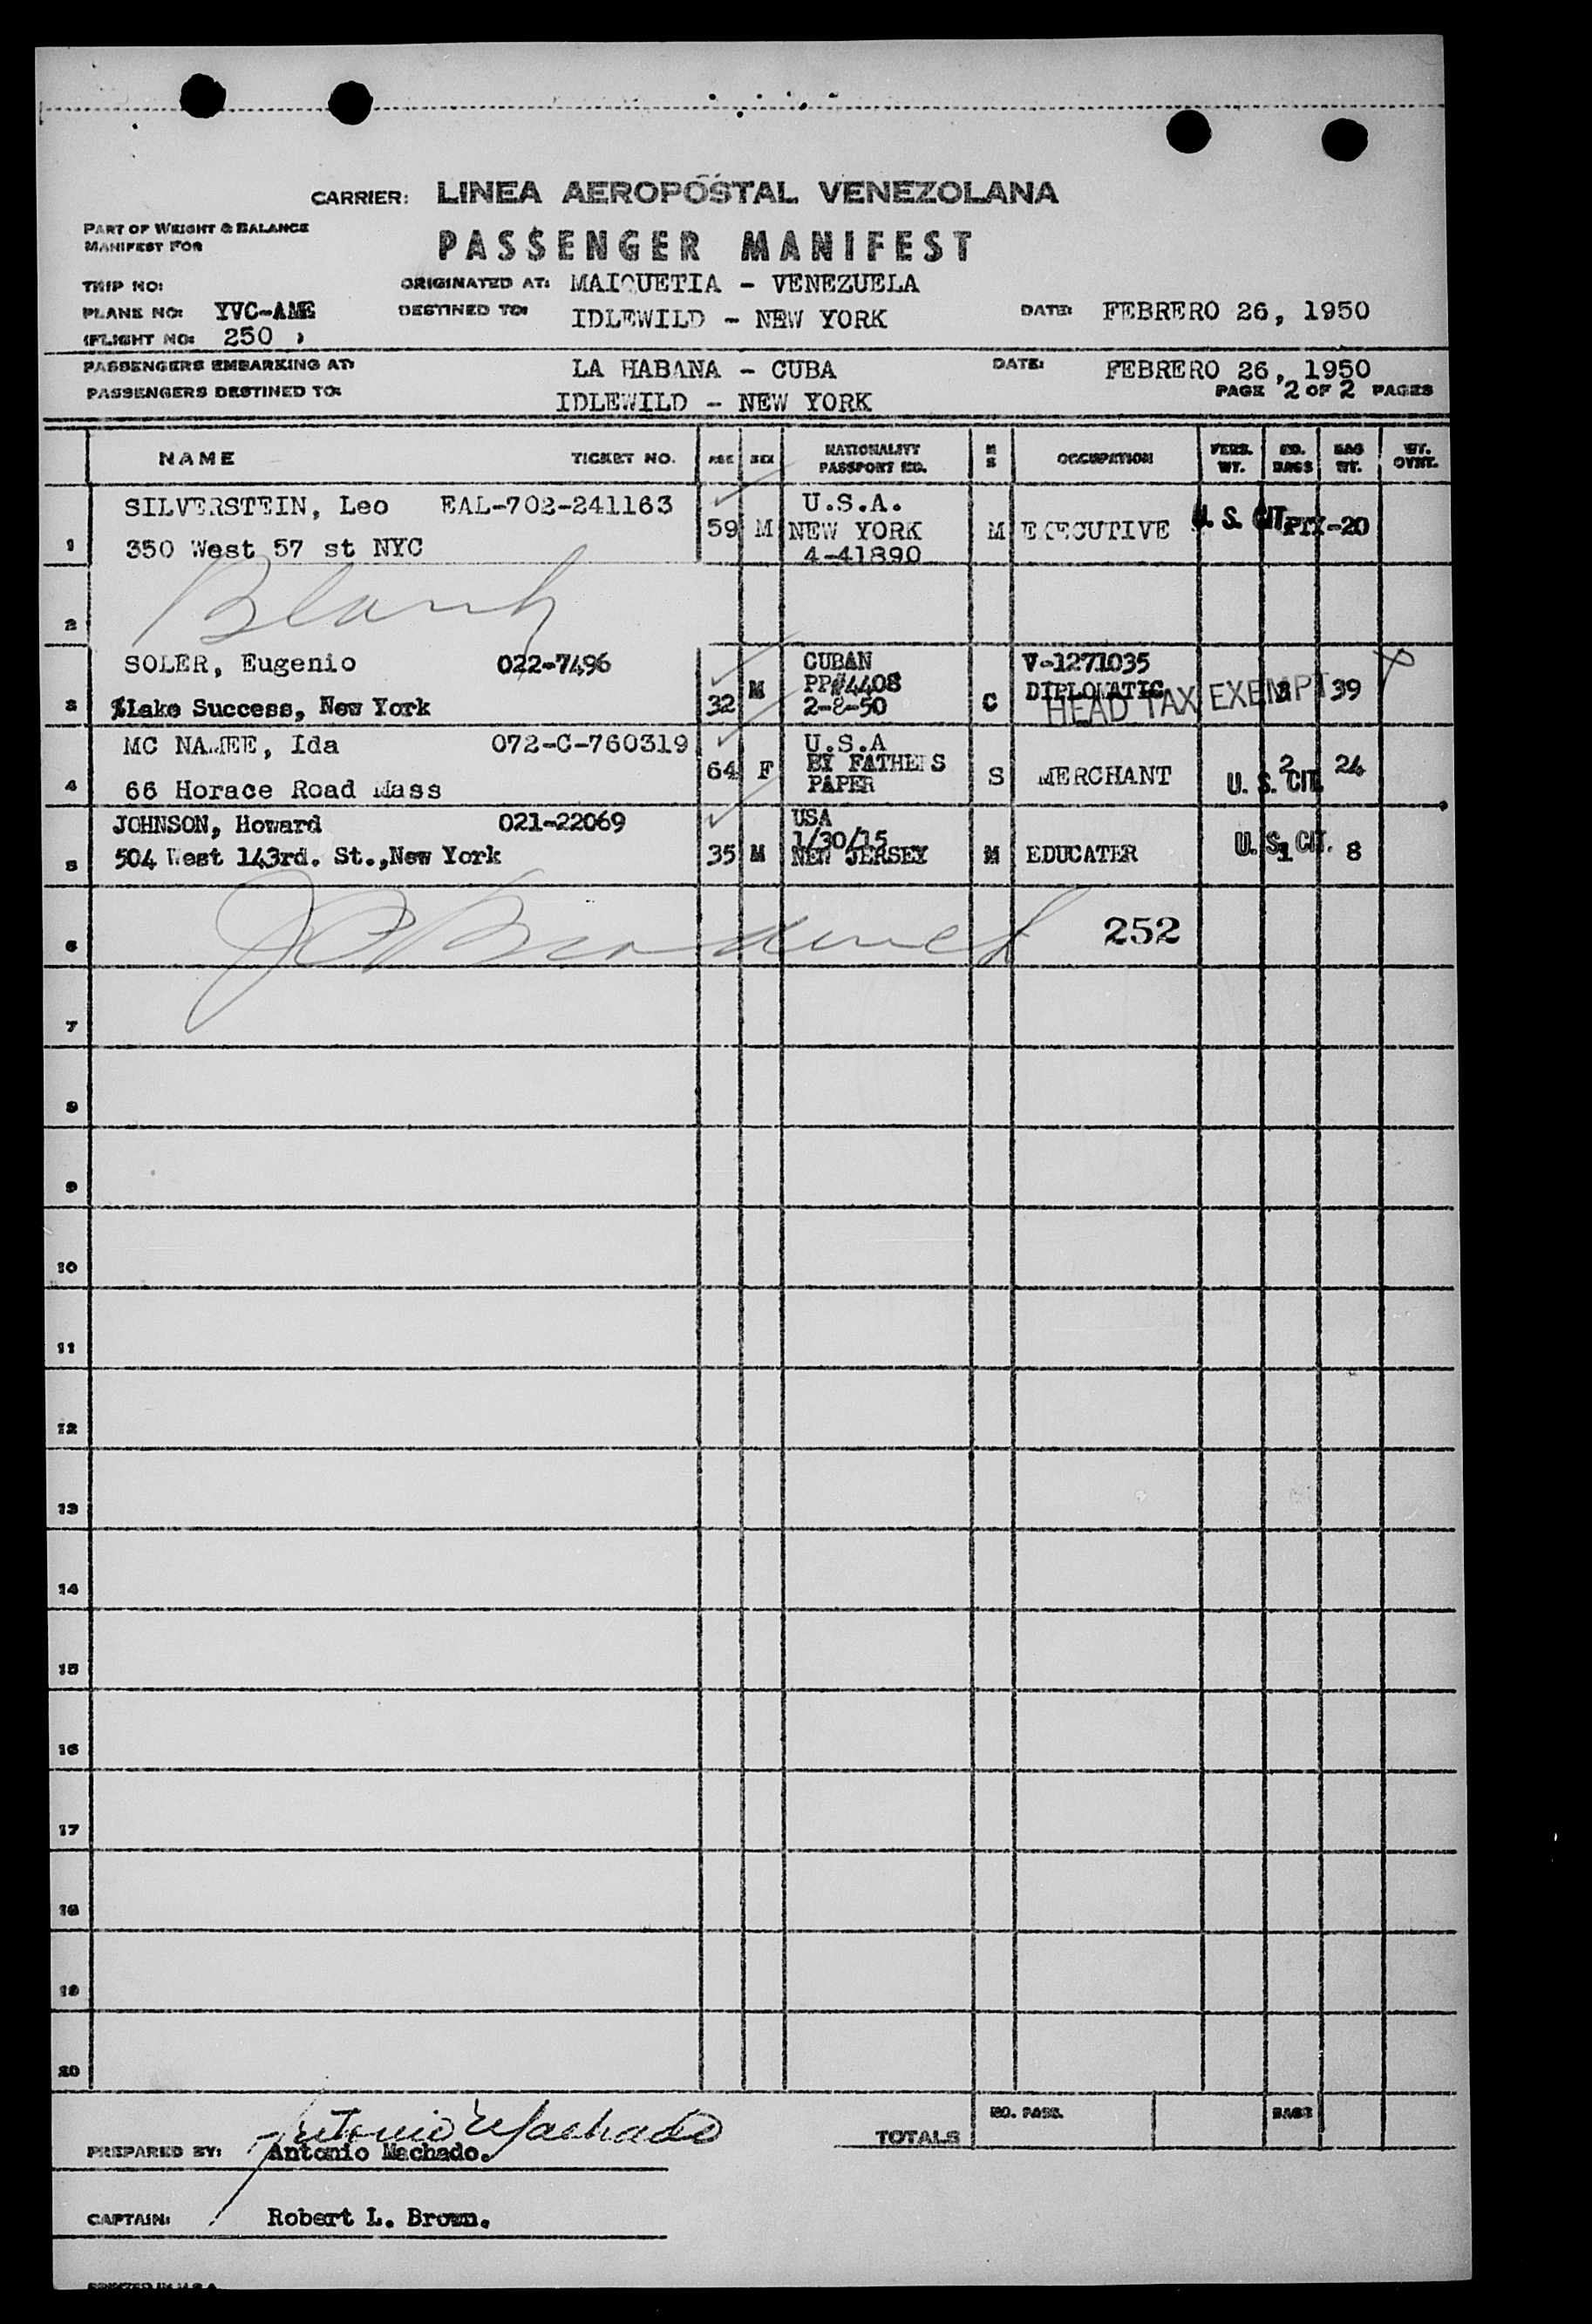 CARRIER: LINEA AEROPOSTAL VENEZOLANA
PART OF WEIGHT & BALANCE
MANIFEST FOR
PASSENGER MANIFEST
TRIP NO:
ORIGINATED AT: MAIQUETIA - VENEZUELA
PLANE NO: YVC-AME
DESTINED TO: IDLEWILD - NEW YORK
DATE: FEBRERO 26, 1950
(FLIGHT NO: 250 )
PASSENGERS EMBARKING AT: LA HABANA - CUBA
DATE: FEBRERO 26, 1950
PASSENGERS DESTINED TO: IDLEWILD - NEW YORK
PAGE 2 OF 2 PAGES
NAME TICKET NO. AGE SEX NATIONALITY PASSPORT NO. M S OCCUPATION PERS. WT. NO. BAGS BAG WT. WT. OVWT.
SILVERSTEIN, Leo EAL-702-241163 U.S.A.
59 M NEW YORK M EXECUTIVE U. S. CIT. -20
1 350 West 57 st NYC 4-41890
2 Blank
SOLER, Eugenio 022-7496 CUBAN V-1271035
M PP#4408 DIPLOMATIC 39
3 %Lake Success, New York 32 2-8-50 C HEAD TAX EXEMPT
MC NAMEE, Ida 072-C-760319 U.S.A
64 F BY FATHERS S MERCHANT 2 24
4 66 Horace Road Mass PAPER U. S. CIT.
JOHNSON, Howard 021-22069 USA
1/30/15 U. S. CIT.
5 504 West 143rd. St.,New York 35 M NEW JERSEY M EDUCATER 1 8
6 252
7
8
9
10
11
12
13
14
15
16
17
18
19
20
NO. PASS. BAGS
TOTALS
Antonio Machado
PREPARED BY: Antonio Machado.
CAPTAIN: Robert L. Brown.
PRINTED IN U.S.A.